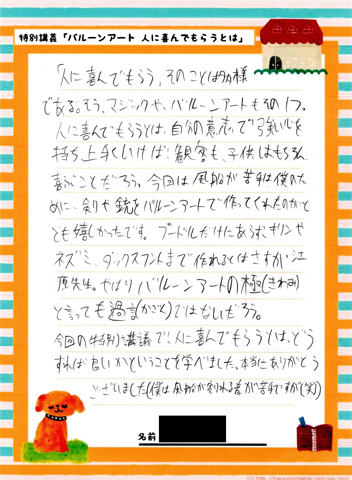 特別講義「バルーンアート 人に喜んでもらうとは」
「人に喜んでもらう」そのことは多様
である。そう、マジックや、バルーンアートもその1つ。
人に喜んでもらうとは、自分の意志で強い心を
持ち上手くいけば、観客も、子供はもちろん、
喜ぶことだろう。今回は風船が苦手は僕のた
めに、剣や銃をバルーンアートで作ってくれたのがと
とも嬉しかったです。プードルだけにあらず、キリンや
ネズミ、ダックスフントまで作れるとはさすが江
原先生。やはりバルーンアートの極(きわみ)
と言っても過言(かごと)ではないだろう。
今回の特別講議で、人に喜んでもらうとは、どう
すれば良いかということを学べました、本当にありがとう
ございました(僕は風船が割れる音が苦手ですが(笑)
名前